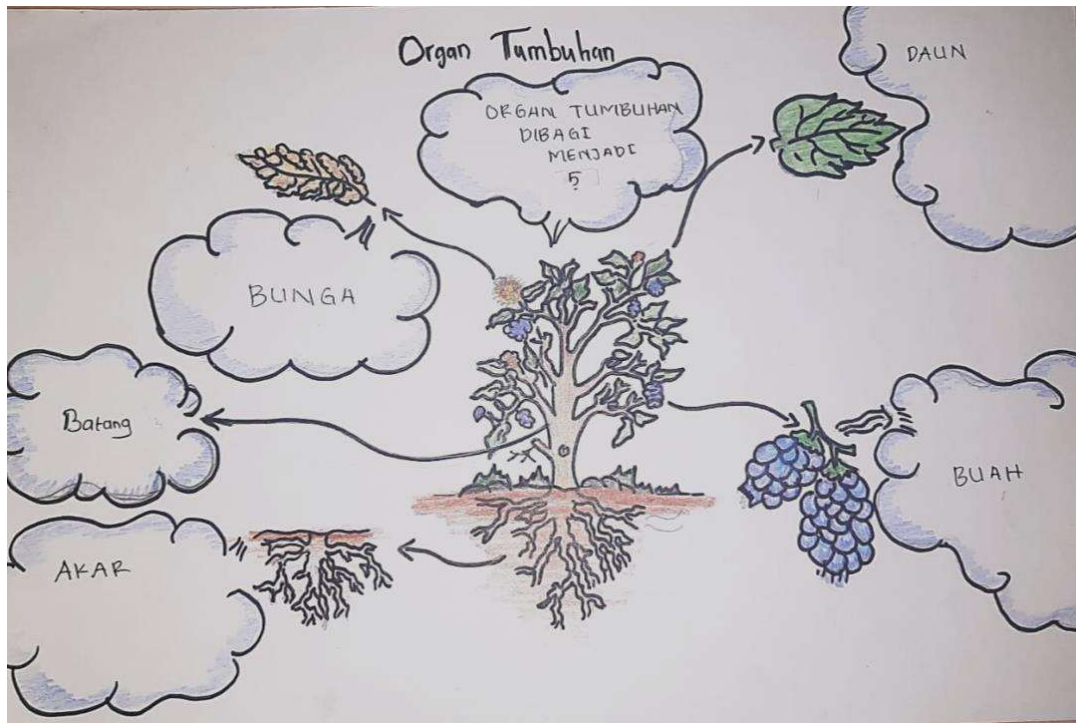 Organ Tumbuhan
ORGAN TUMBUHAN
DIBAGI
MENJADI
5
DAUN
BUNGA
Batang
BUAH
AKAR